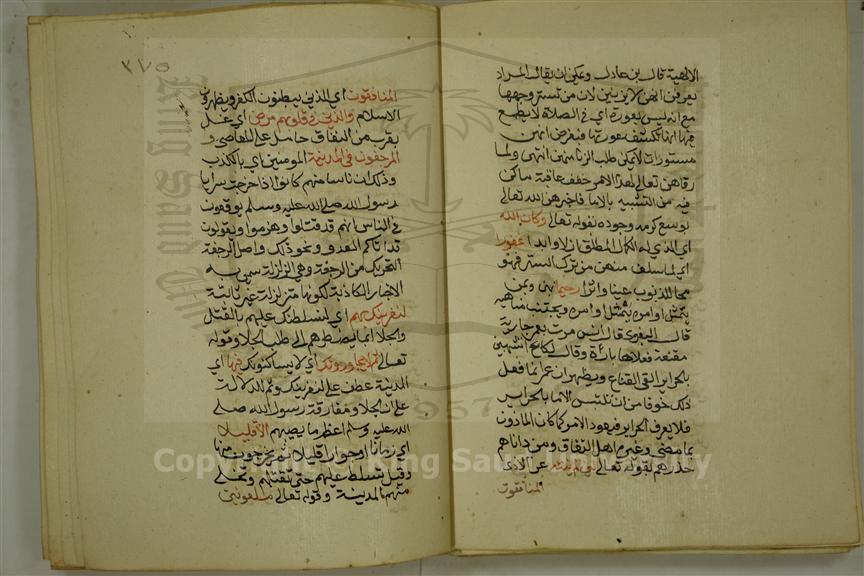 الالهية قال بن عادل ويمكن ان يقال المراد
يعرفن انهن لا يزنين لان من تستر وجهها
مع انه ليس بعورة اي في الصلاة لا يطمع
فيها انها تكشف عورتها فيعرفن انهن
مستورات لا يمكن طلب الزنا منهن انتهى ولما
رقاهن تعالى لهذا الامر خفف عاقبة ما كن
فيه من التشبيه بالاما فاخبرهن الله تعالى
بوسع كرمه وجوده بقوله تعالى وكان الله
اي الذي له الكمال المطلق ازلا وابدا غفورا
اي لما سلف منهن من ترك الستر فهو
محا للذنوب عينا واثرا رحيما بهن وبمن
يمتثل اوامره ويجتنب مناهيه
قال البغوي قال انس مرت بعمر جارية
مقنعة فعلاها بالدرة وقال يا لكاع اتشبهين
بالحراير القي القناع ويظهر ان عمر انما فعل
ذلك خوفا من ان تلتبس الاما بالحراير
فلا يعرف الحراير فيعود الامر كما كان الماذون
بما مضى وغيره اهل النفاق ومن داناهم
حذرهم بقوله تعالى لين لم ينته عن الاذى
المنافقون
٣٧٥
المنافقون اي الذين يبطنون الكفر ويظهرون
الاسلام والذين في قلوبهم مرض اي غل
يقرب من النفاق حامل على المعاصي و
المرجفون في المدينة المومنين اي بالكذب
وذلك ان ناسا منهم كانوا اذا خرجت سرايا
رسول الله صلى الله عليه وسلم يوقعون
في الناس انهم قد قتلوا وهزموا ويقولون
قد اتاكم العدو ونحو ذلك واصل الرجفة
التحريك من الرجفة وهي الزلزلة سمي به
الاخبار الكاذبة لكونها متزلزلة غير ثابتة
لنغرينك بهم اي لنسلطنك عليهم بالقتل
والجلا او بما يضطرهم الى طلب الجلا وقوله
تعالى ثم لا يجاورونك اي لا يساكنونك فيها اي
المدينة عطف على لنغرينك وثم للدلالة
على ان الجلا ومفارقة رسول الله صلى
الله عليه وسلم اعظم ما يصيبهم الا قليلا
اي زمانا او جوارا قليلا ثم يخرجون منها
وقيل نسلطك عليهم حتى تقتلهم وتخلي
منهم المدينة وقوله تعالى ملعونين
Copyright © King Saud University
King Saud University
1957